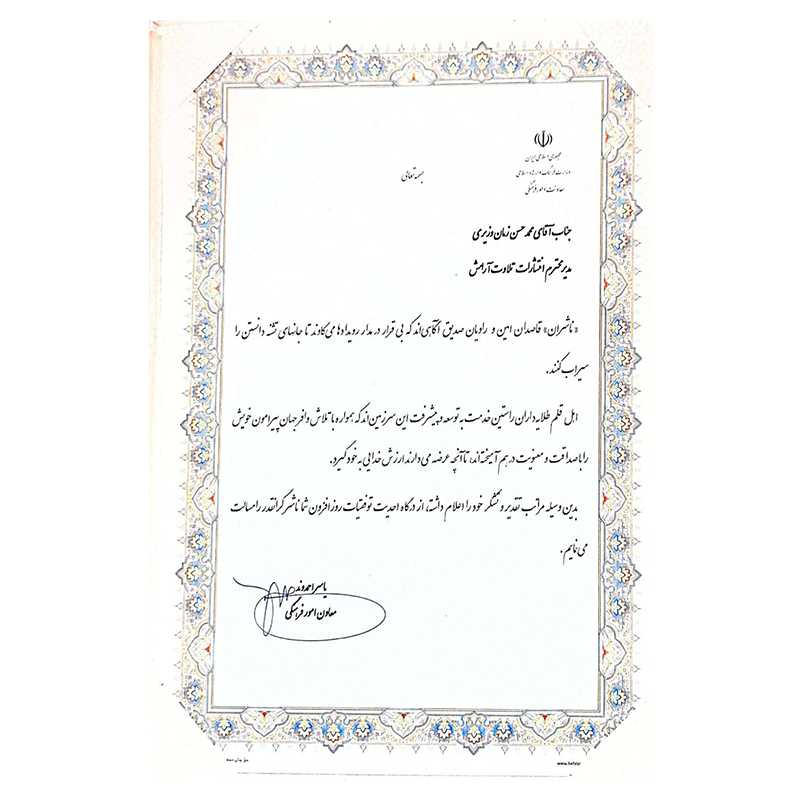 جمهوری اسلامی ایران
وزارت فرهنگ و ارشاد اسلامی
معاونت امور فرهنگی
بسمه تعالی
جناب آقای محمد حسن زمان وزیری
مدیر محترم انتشارات تلاوت آرامش
«ناشران» قاصدان امین و راویان صدیق آگاهی‌اند که بی قرار در مدار رویدادها می‌کاوند تا جانهای تشنه دانستن را
سیراب کنند.
اهل قلم طلایه‌داران راستین خدمت به توسعه و پیشرفت این سرزمین‌اند که همواره با تلاش وافر جهان پیرامون خویش
را با صداقت و معنویت در هم آمیخته‌اند، تا آنچه عرضه می‌دارند ارزش خدایی به خود گیرد.
بدین وسیله مراتب تقدیر و تشکر خود را اعلام داشته، از درگاه احدیت توفیقات روزافزون شما ناشر گرانقدر را مسالت
می نمایم.
یاسر احمدوند
معاون امور فرهنگی